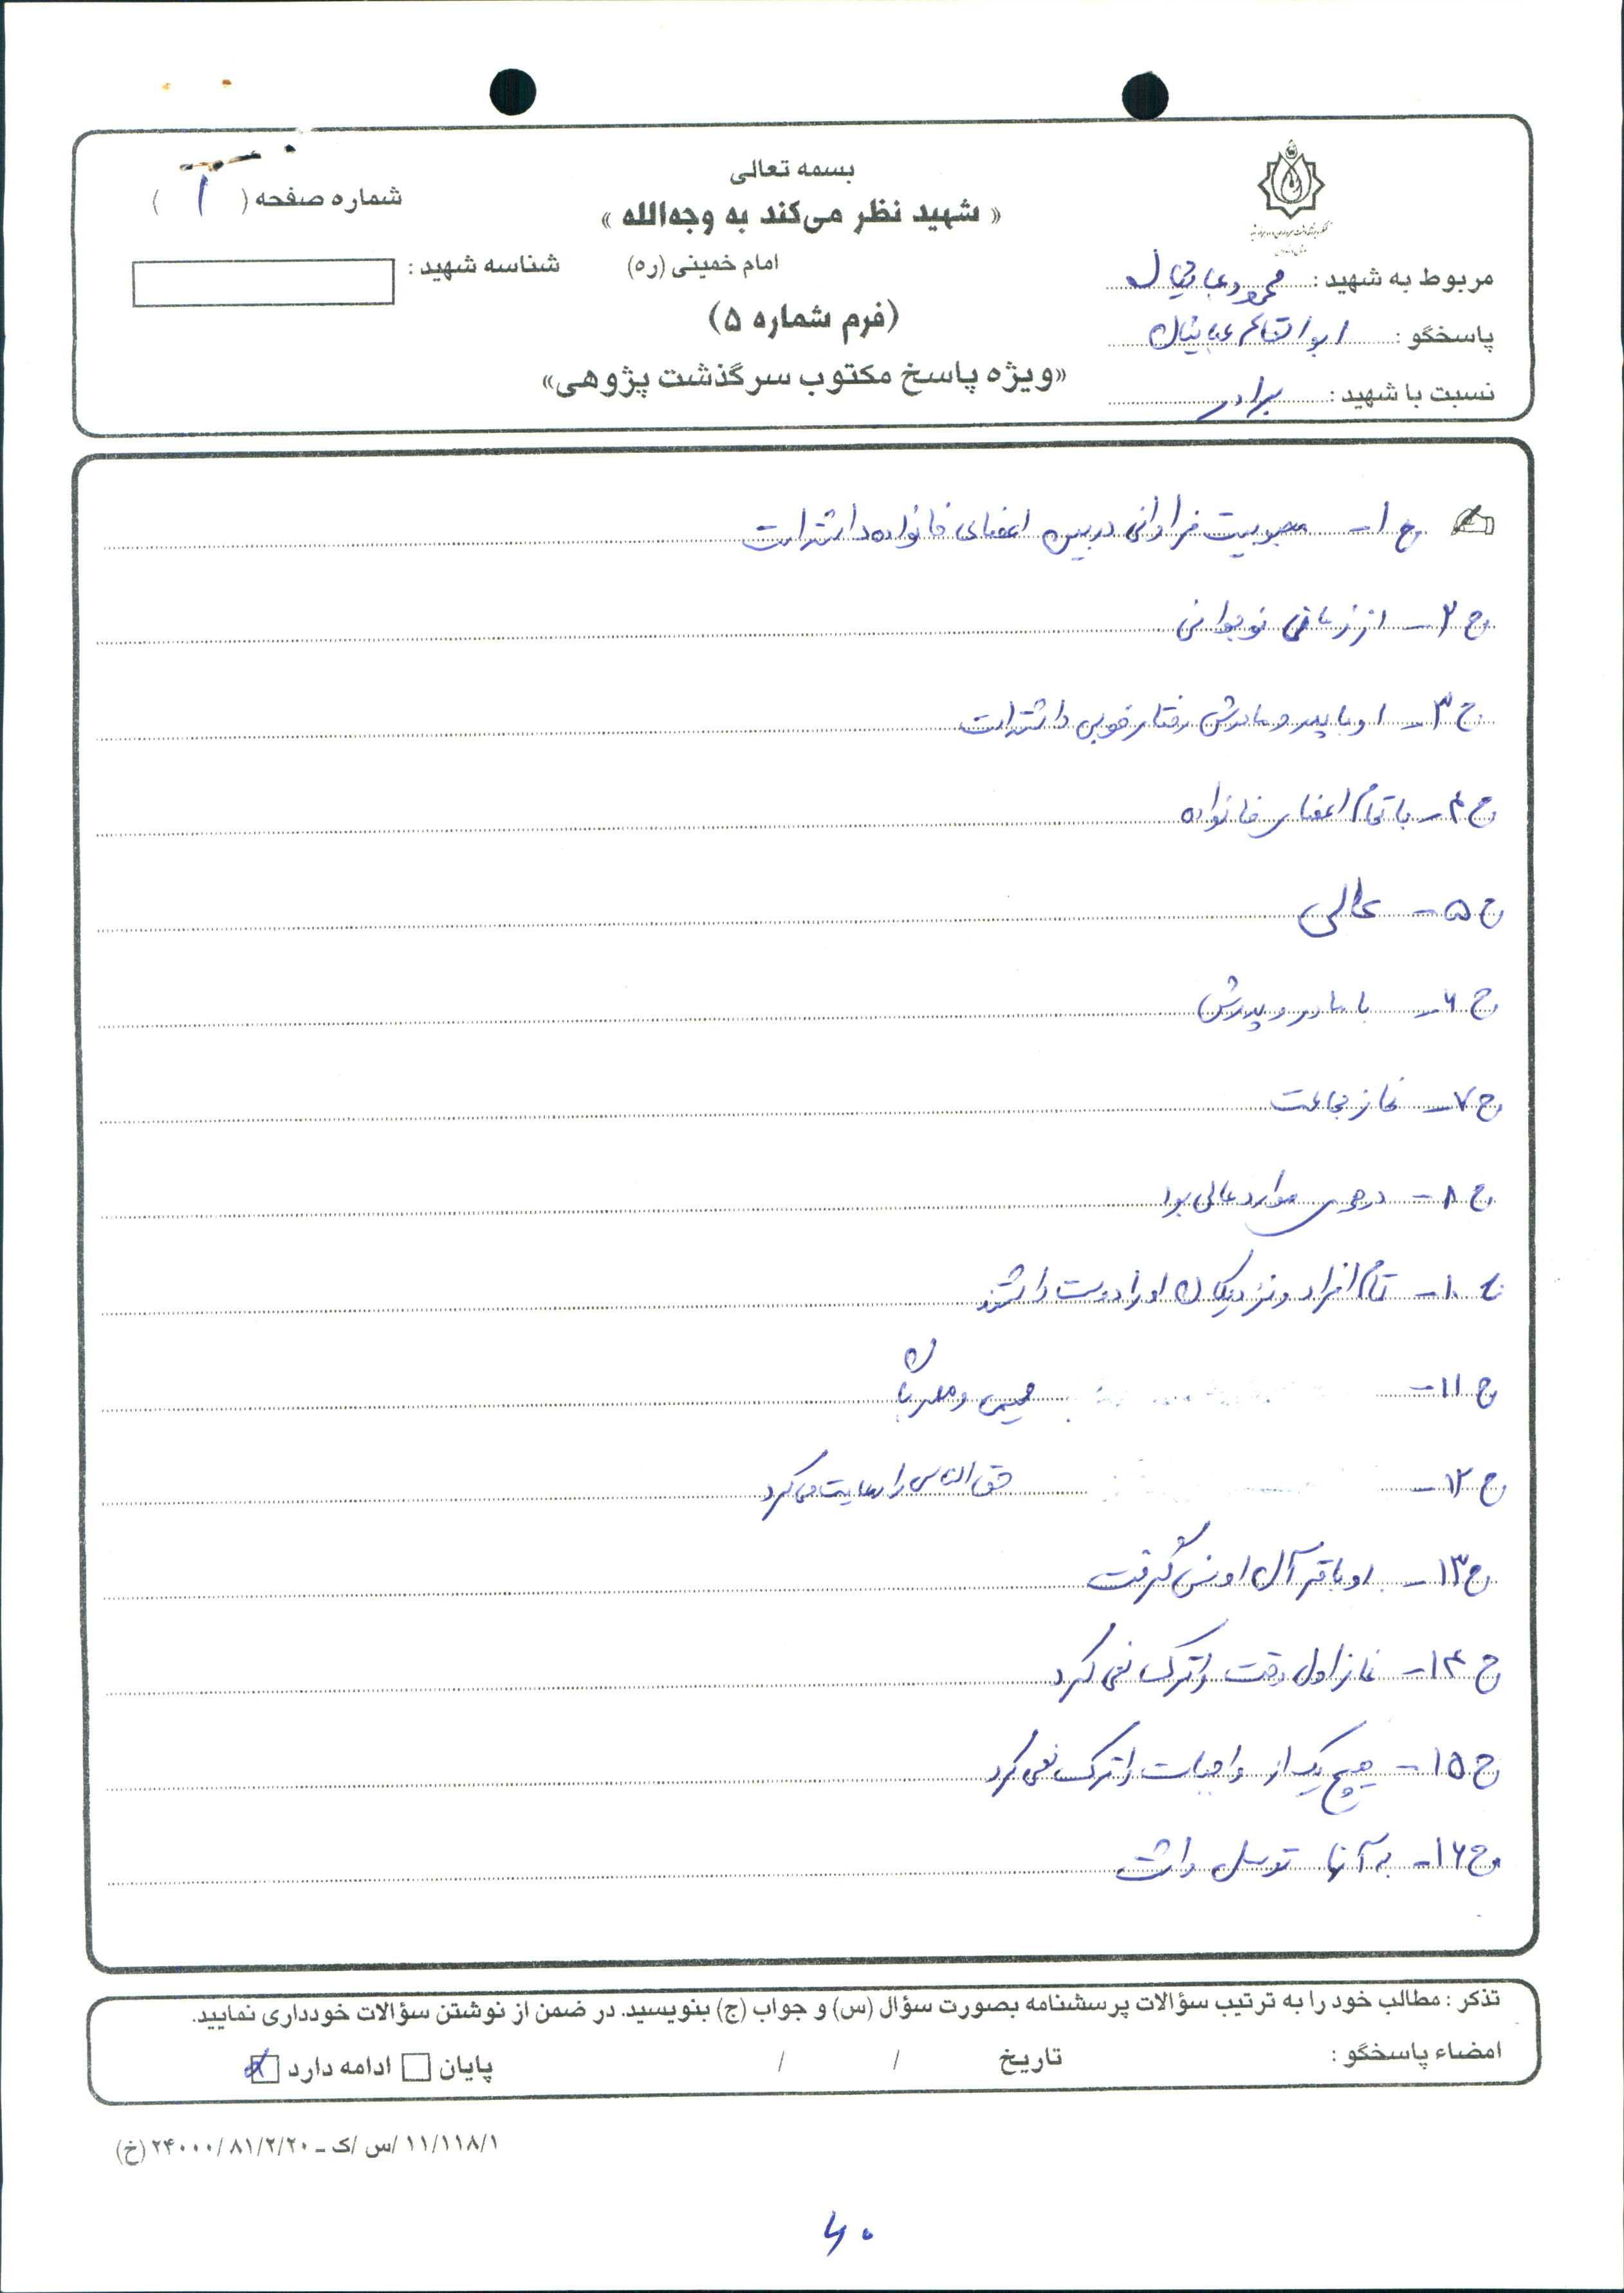 بسمه تعالی
« شهید نظر می‌کند به وجه‌الله »
امام خمینی (ره)
(فرم شماره ۵)
«ویژه پاسخ مکتوب سرگذشت پژوهی»
مربوط به شهید : محمود
پاسخگو : ابوالقاسم
نسبت با شهید : برادر
شماره صفحه ( ۱ )
شناسه شهید :
ج ۱- محبوبیت فراوانی در بین اعضای خانواده داشته است
ج ۲- از زمانی نوجوانی
ج ۳- او با پدر و مادرش رفتار خوبی داشته است
ج ۴- با تمام اعضای خانواده
ج ۵- عالی
ج ۶- با مادر و پدرش
ج ۷- نماز جماعت
ج ۸- در موارد عالی بود
ج ۱۰- تمام افراد و نزدیکان او را دوست داشتند
ج ۱۱- صمیمی و مهربان
ج ۱۲- حق الناس را رعایت می کرد
ج ۱۳- او با قرآن اونس می گرفت
ج ۱۴- نماز اول وقت را ترک نمی کرد
ج ۱۵- هیچ یک از واجبات را ترک نمی کرد
ج ۱۶- به آنها توسل داشت
تذکر : مطالب خود را به ترتیب سؤالات پرسشنامه بصورت سؤال (س) و جواب (ج) بنویسید. در ضمن از نوشتن سؤالات خودداری نمایید.
امضاء پاسخگو : تاریخ / / پایان ادامه دارد
۱۱/۱۱۸/۱ /س /ک ـ ۲۴۰۰۰/۸۱/۲/۲۰ (خ)
۶۰